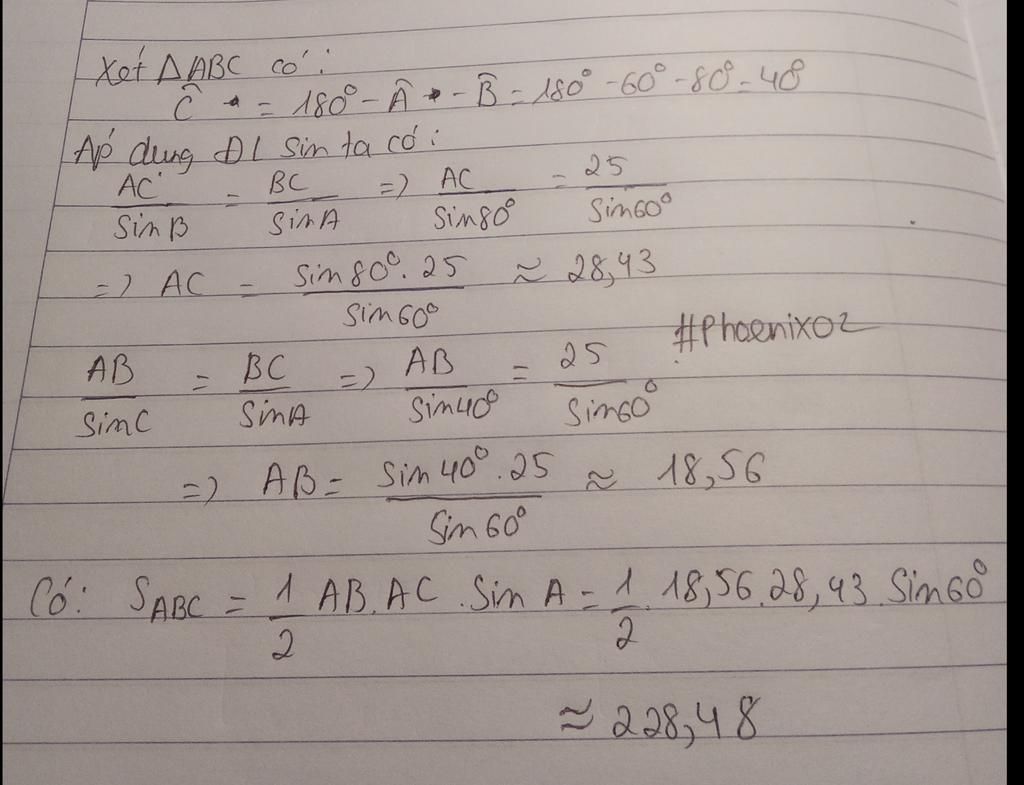 Xét ΔABC có:
Ĉ = 180° - Â - B̂ = 180° - 60° - 80° = 40°
Áp dụng ĐL Sin ta có:
AC/SinB = BC/SinA => AC/Sin80° = 25/Sin60°
=> AC = Sin80°.25/Sin60° ≈ 28,43
#Phoenix02
AB/SinC = BC/SinA => AB/Sin40° = 25/Sin60°
=> AB = Sin40°.25/Sin60° ≈ 18,56
Có: S_ABC = 1/2 AB.AC.Sin A = 1/2.18,56.28,43.Sin60°
≈ 228,48